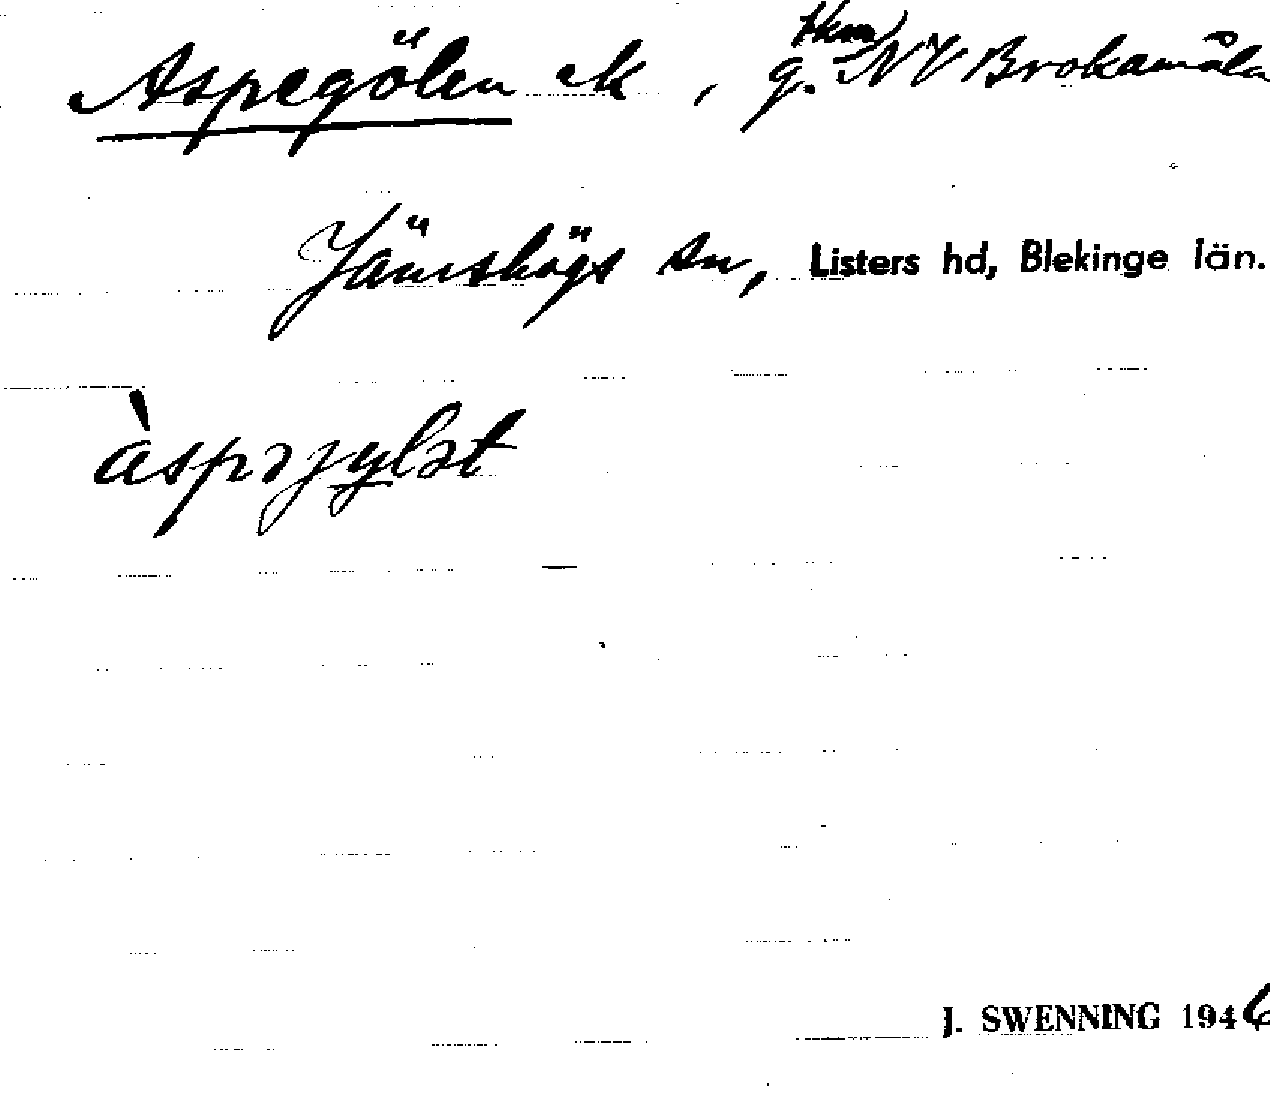 Aspegölen ek, g. 1 km NV Brokamåla
Jämshögs sn, Listers hd, Blekinge län.
àspəjylət
J. SWENNING 1946